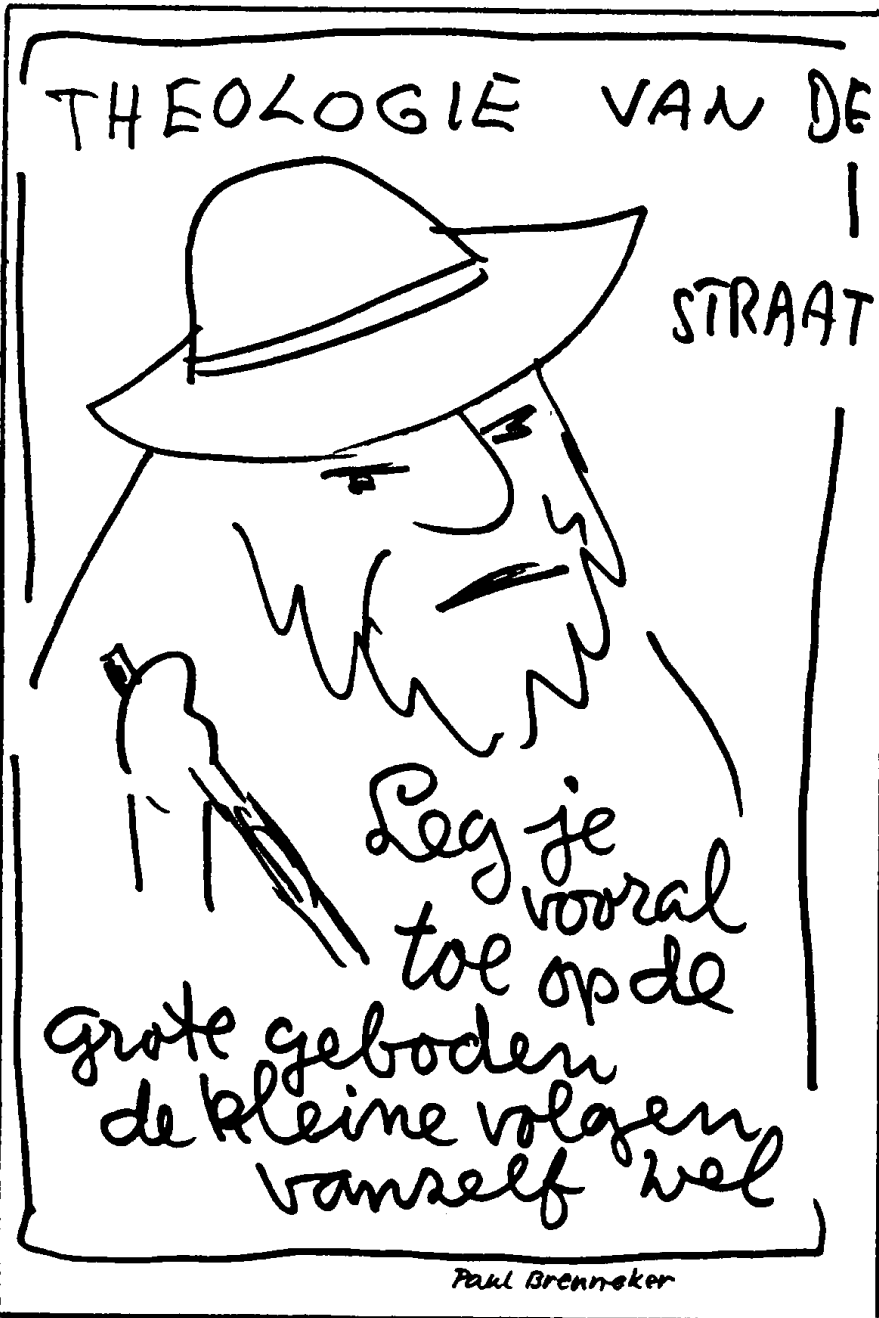 THEOLOGIE VAN DE
STRAAT
Leg je
vooral
toe op de
grote geboden
de kleine volgen
vanzelf wel
Paul Brenneker